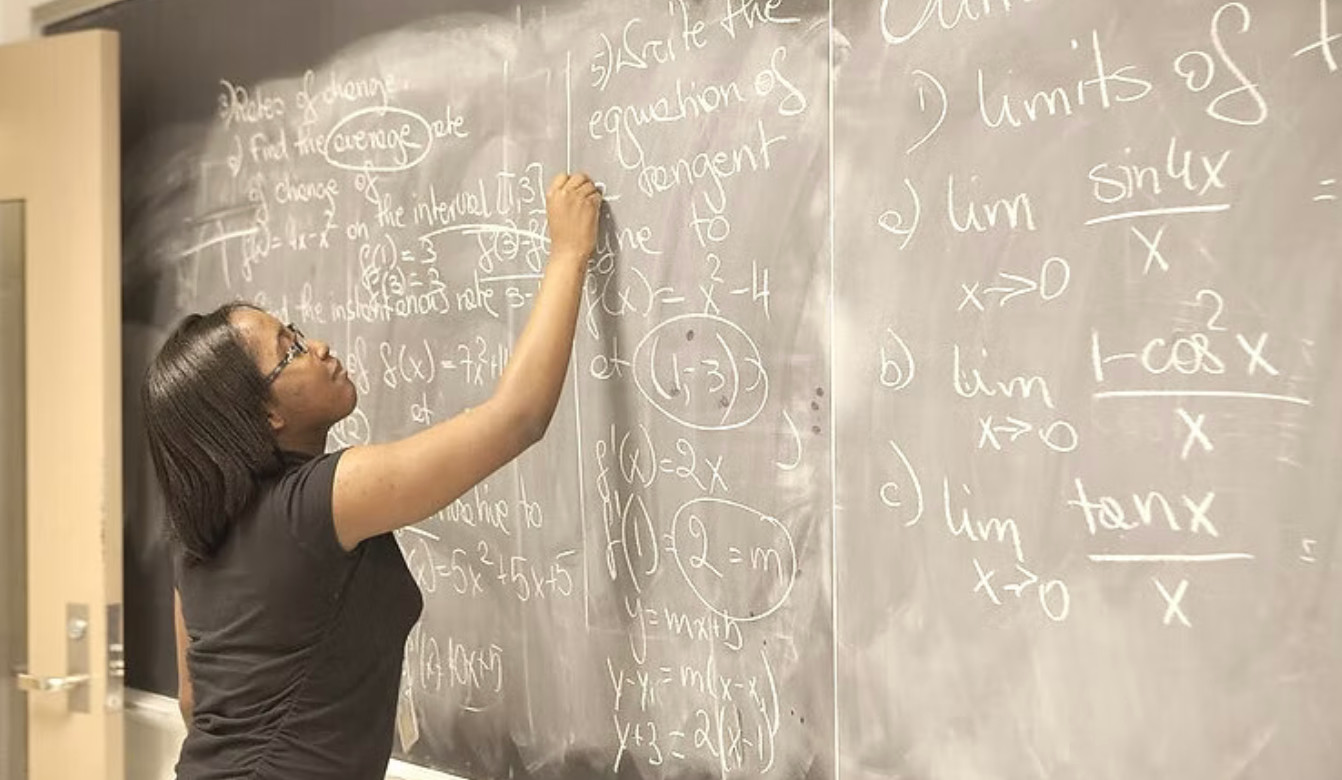 3) Rates of change.
a) Find the average rate
of change of
f(x) = 4x-x² on the interval [1,3]
f(1) = 3
f(3) = 3
f(3)-f
3-
find the instantaneous rate
of f(x) = 7x²+
at
to
x) = 5x²+5x+5
f'(x) 10x+5
5) Write the
equation of
tangent
line to
f(x) = x²-4
at (1,-3)
f'(x) = 2x
f'(1) = 2 = m
y = mx+b
y-y₁ = m(x-x₁)
y+3 = 2(x-1)
1) limits of t
a) lim x→0 sin4x / x =
b) lim x→0 1-cos²x / x
c) lim x→0 tanx / x =